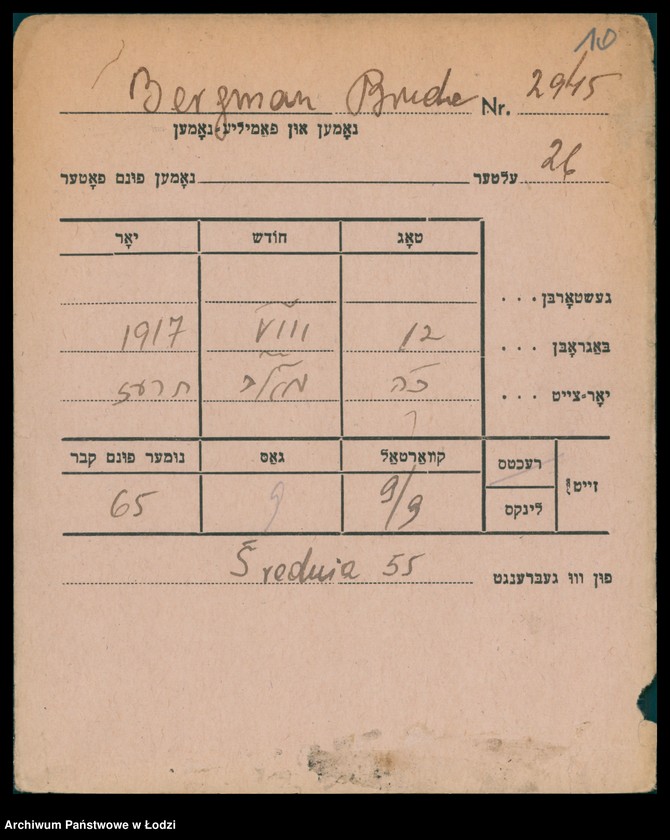 10
Bergman Nr. 2945
נאָמען און פֿאַמיליע-נאָמען
נאָמען פֿונם פֿאָטער עלטער 26
טאָג חודש יאָר
געשטאָרבן . . .
באַגראָבן . . . 12 VIII 1917
יאָר-צייט . . . כה תרעז
רעכטס קוואַרטאַל גאַס נומער פֿונם קבר
זייט
לינקס 9/9 9 65
פֿון וווּ געברענגט Średnia 55
Archiwum Państwowe w Łodzi